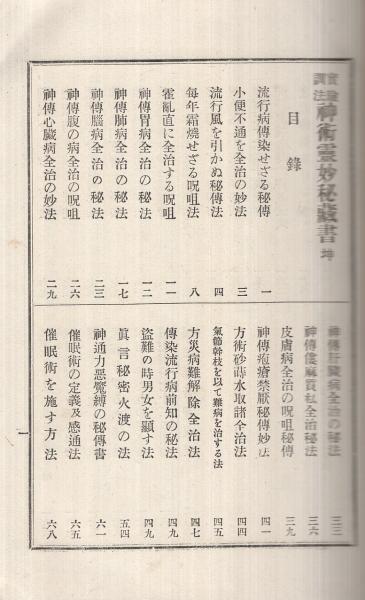 實驗調法神術靈妙秘藏書 坤
目錄
流行病傳染せざる秘傳 一
小便不通を全治の妙法 三
流行風を引かぬ秘傳法 四
每年霜燒せざる呪咀 八
霍亂直に全治する呪咀 一一
神傳胃病全治の秘法 一二
神傳肺病全治の秘法 一七
神傳腦病全治の秘法 二三
神傳腹の病全治の呪咀 二六
神傳心臟病全治の妙法 二九
神傳 臟病全治の秘法 三三
神傳僂麻質私全治秘法 三六
皮膚病全治の呪咀秘傳 三九
神傳疱瘡禁厭秘傳妙法 四一
方術砂蒔水取諸令治法 四四
氣節幹枝を以て難病を治する法 四五
方災病難解除全治法 四七
傳染流行病前知の秘法 四九
盜難の時男女を顯す法 四九
眞言秘密火渡の法 五四
神通力惡魔縛の秘傳書 六一
催眠術の定義及感通法 六五
催眠術を施す方法 六八
一